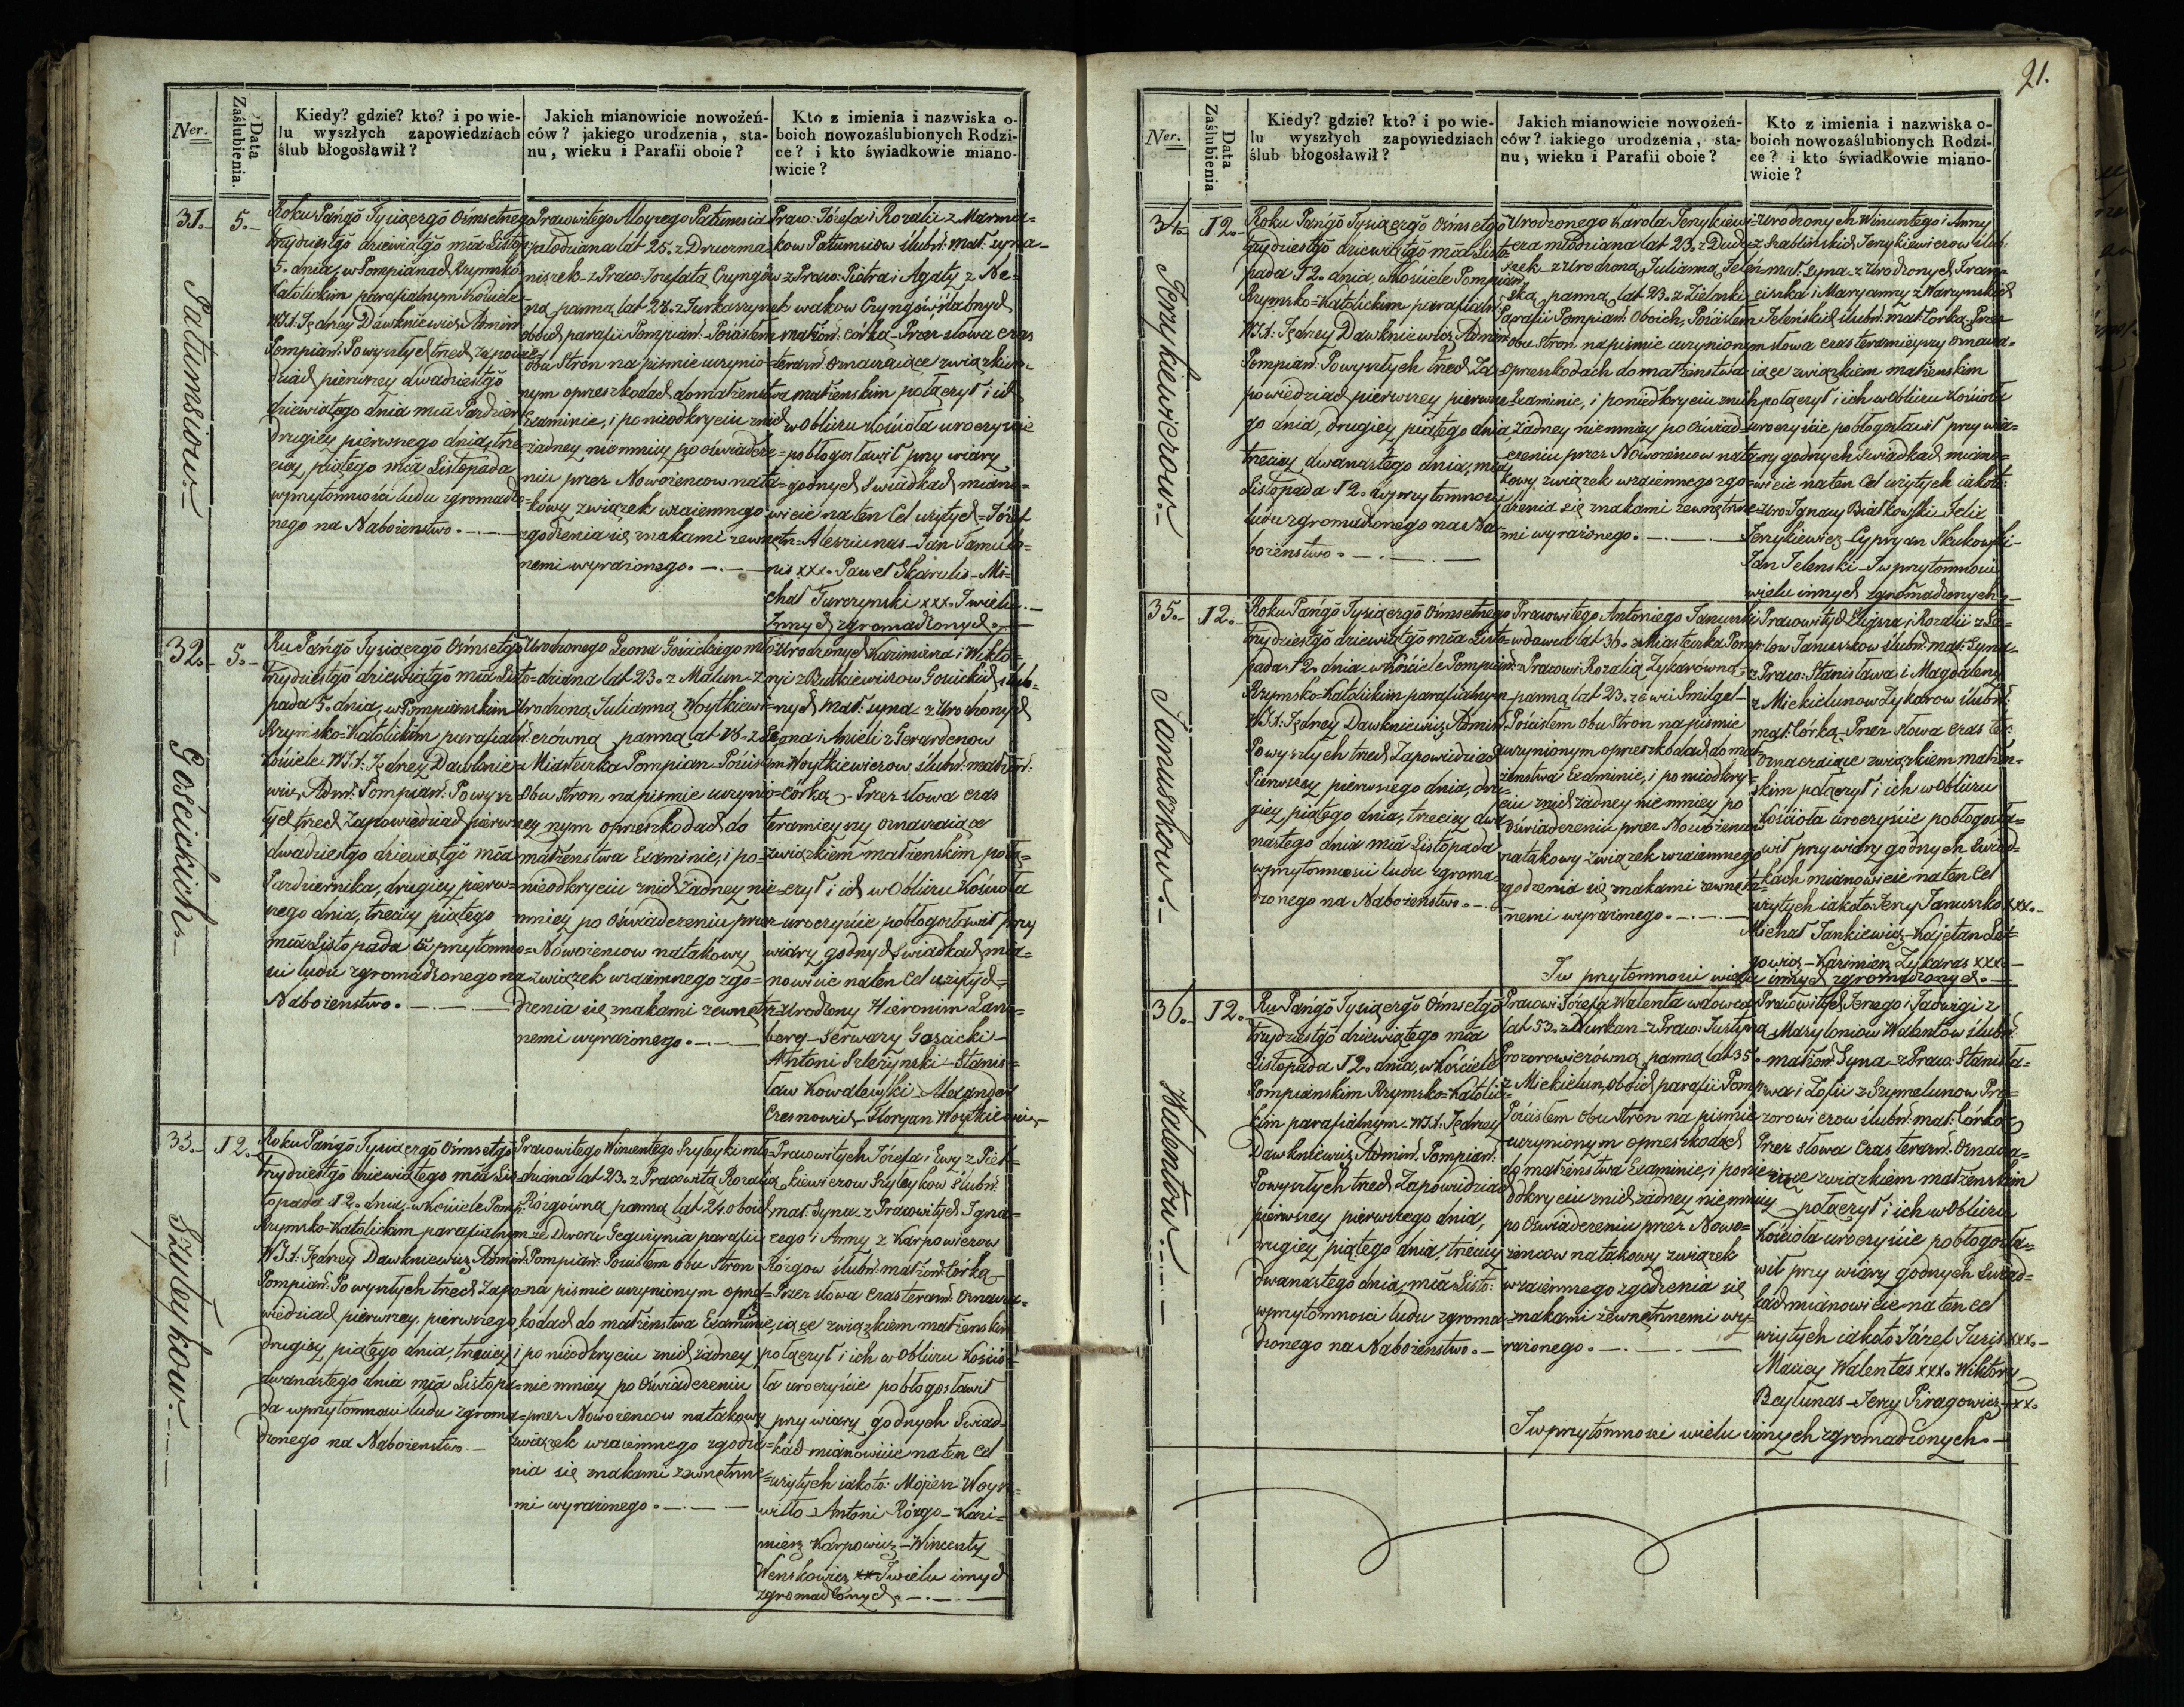 21.
Ner.
Data Zaślubienia.
Kiedy? gdzie? kto? i po wie-
lu wyszłych zapowiedziach
ślub błogosławił?
Jakich mianowicie nowożeń-
ców? jakiego urodzenia, sta-
nu, wieku i Parafii oboie?
Kto z imienia i nazwiska o-
boich nowozaślubionych Rodzi-
ce? i kto świadkowie miano-
wicie?
31.
5.
Patumsiow.
Roku Pańgō Tysiącgō Ośmsetnego
trzydziestgō dziewiątgō mća Listop:
5. dnia, w Pompianach Rzymsko
Katolickim parafialnym Kościele
WJX. Jędrzey Dawkniewicz Admin
Pompiań: Powyszłych trzech zapowie
dziach pierwszey dwadziestgō
dziewiątego dnia mća Pazdzier
drugiey pierwszego dnia, trze
ciey piątego mća Listopada
w przytomności ludu zgromadzo
nego na Nabożenstwo.
Prawowitego Aloyzego Patumsia
młodziana lat 25. z Druczma
niszek z Praw: Jozefata Czyngow
ną panną lat 28. z Jurkaszynek
oboich parafii Pompiań: Poiasłem
obu Stron na piśmie uczynio
nym o przeszkodach do małżenstwa
Examinie, i po nieodkryciu znich
żadney niemniey po oświadcze=
niu przez Nowożencow na ta=
kowy związek wzaiemnego
zgodzenia się znakami zewnętrz=
nemi wyrażonego.
Praw: Józefa i Rozalii z Marma=
kow Patumsiow ślubń: mał: syna
z Praw: Piotra i Agaty z No=
wakow Czyngów ślubnych
małżoń: córką Przez słowa czas
terazń: oznaczaiące związkiem
małżenskim połączył i ich
w Obliczu Kościoła uroczyście
pobłogosławił przy wiary
godnych Świadkach miano=
wicie na ten Cel użytych = Józef
Aleszunas Jan Tamulo=
nis xxx. Paweł Skarulis Mi=
chał Turczynski xxx. I wielu
Innych zgromadzonych.
32.
5.
Gościckich.
Ru Pańgō Tysiącgō Ośmsetgō
trzydziestgō dziewiątgō mća Listo=
pada 5. dnia, w Pompianskim
Rzymsko=Katolickim parafialń:
Kościele WJX. Jędrzey Dawknie=
wicz Admń: Pompiań: Powysz
łych trzech Zapowiedziach pierwszey
dwadziestgo dziewiątgō mća
Pazdziernika, drugiey pierw=
szego dnia, trzeciey piątego
mća Listopada w przytomno=
ści ludu zgromadzonego na
Nabożenstwo.
Urodzonego Leona Gościckiego mło
dziana lat 23. z Mulun z
Urodzoną Julianną Woytkiewi
czówną panną lat 18. z
Miasteczka Pompian Poiasłem
Obu Stron na piśmie uczynio=
nym o przeszkodach do
małżenstwa Examinie, i po=
nieodkryciu znich żadney nie=
mniey po Oświadczeniu przez
Nowożencow na takowy
związek wzaiemnego zgo=
dzenia się znakami zewnętrz
nemi wyrażonego.
Urodzonych Kazimierza i Wikto=
ryi z Butkiewiczow Gościckich ślub=
nych mał: syna z Urodzonych
Leona i Anieli z Gerardenow
Woytkiewiczow ślubń: małżoń:
córką Przez słowa czas
teraznieyszy oznaczaiące
związkiem małżenskim połą=
czył i ich w Obliczu Kościoła
uroczyście pobłogosławił przy
wiary godnych świadkach mia=
nowicie na ten Cel użytych=
Urodzony Hieronim Lans=
berg Serwacy Gościcki
Antoni Szleżynski Stanis=
ław Kowalewski Alexander
Czesnowicz Floryan Woytkiewicz
33.
12.
Szyłeykow.
Roku Pańgō Tysiącgō Ośmsetgō
trzydziestgō dziewiątego mća Lis=
topada 12. dnia, w Kościele Pomp:
Rzymsko-Katolickim parafialnym
WJX. Jędrzey Dawkniewicz Admiń
Pompiań: Powyszłych trzech Zapo=
wiedziach pierwszey, pierwszego
drugiey piątego dnia, trzeciey
dwanastego dnia mća Listopa=
da w przytomności ludu zgroma=
dzonego na Nabożenstwo.
Prawowitego Wincentego Szyłeyki mło=
dziana lat 23. z Prawowitą Rozalią
Rózgówną panną lat 24 oboich
ze Dworu Gegużynia parafii
Pompiań: Poiasłem obu Stron
na piśmie uczynionym o przesz=
kodach do małżenstwa Examinie,
i po nieodkryciu znich żadney
niemniey po Oświadczeniu
przez Nowożencow na takowy
związek wzaiemnego zgodze=
nia się znakami zewnętrzne=
mi wyrażonego.
Prawowitych Józefa i Ewy z Piet=
kiewiczow Szyłeykow Ślubń:
mał: Syna z Prawowitych Igna=
cego i Anny z Karpowiczow
Rózgow ślubń: małżoń: Córką
Przez słowa czas terazń: oznacza=
iące związkiem małżenskim
połączył i ich w Obliczu Kościo=
ła uroczyście pobłogosławił
przy wiary godnych Świad=
kach mianowicie na ten Cel
użytych iakoto: Mojżesz Woysz=
wiłło Antoni Rózgo Kazi=
mierz Karpowicz Wincenty
Wenskowicz xx I wielu innych
zgromadzonych.
Ner.
Data Zaślubienia.
Kiedy? gdzie? kto? i po wie-
lu wyszłych zapowiedziach
ślub błogosławił?
Jakich mianowicie nowożeń-
ców? iakiego urodzenia, sta-
nu, wieku i Parafii oboie?
Kto z imienia i nazwiska o-
boich nowozaślubionych Rodzi-
ce? i kto świadkowie miano-
wicie?
34.
12.
Jenykiewiczow.
Roku Pańgō Tysiącgō Ośmsetgō
trzydziestgō dziewiątgō mća Listo=
pada 12. dnia, w Kościele Pompiań
Rzymsko=Katolickim parafialń
WJX. Jędrzey Dawkniewicz Admiń
Pompiań: Powyszłych trzech Za=
powiedziach pierwszey pierwsze=
go dnia, drugiey piątego dnia,
trzeciey dwanastego dnia, mća
Listopada 12. w przytomności
ludu zgromadzonego na Na=
bożenstwo.
Urodzonego Karola Jenykiewi=
cza młodziana lat 23. z Dudy=
szek z Urodzoną Julianną Jeleń=
ską panną lat 23. z Zielonki
Parafii Pompiań: Oboich, Poiasłem
obu Stron na piśmie uczynionym
o przeszkodach do małżenstwa
Examinie, i po nieodkryciu znich
żadney niemniey po Oświad=
czeniu przez Nowożencow na ta=
kowy związek wzaiemnego zgo=
dzenia się znakami zewnętrzne=
mi wyrażonego.
Urodzonych Wincentego i Anny
z Szablinskich Jenykiewiczow ślub:
mał: syna z Urodzonych Fran=
ciszka i Maryanny z Warynskich
Jeleńskich ślubń: mał: Corką Przez
słowa czas teraznieyszy oznacza=
iące związkiem małżenskim
połączył i ich w Obliczu Kościoła
uroczyście pobłogosławił przy wia=
ry godnych Świadkach miano=
wicie na ten Cel użytych iakoto:
Uro: Ignacy Białkowski Felix
Jenykiewicz Cypryan Skukowski
Jan Jelenski I w przytomności
wielu innych zgromadzonych
35.
12.
Januszkow.
Roku Pańgō Tysiącgō Ośmsetnego
trzydziestgō dziewiątgō mća Listo=
pada 12. dnia w Kościele Pompiań:
Rzymsko-Katolickim parafialnym
WJX. Jędrzey Dawkniewicz Admiń:
Powyszłych trzech Zapowiedziach
Pierwszey pierwszego dnia, dru=
giey piątego dnia, trzeciey dwa
nastego dnia mća Listopada
w przytomności ludu zgroma=
dzonego na Nabożenstwo.
Prawowitego Antoniego Januszki
wdowca lat 36. z Miasteczka Pomp:
z Prawowi: Rozalią Zykarówną
panną lat 23. ze wsi Smilgel
Poiasłem Obu Stron na piśmie
uczynionym o przeszkodach do mał=
żenstwa Examinie, i po nieodkry=
ciu znich żadney niemniey po
oświadczeniu przez Nowożencow
na takowy związek wzaiemnego
zgodzenia się znakami zewnętrz=
nemi wyrażonego.
Prawowitych Eligiza i Rozalii z
Januszkow ślubń: mał: Syna
z Praw: Stanisława i Magdaleny
z Mickielunow Zykarow ślubń:
mał: Córką Przez słowa czas ter:
oznaczaiące związkiem małżen=
skim połączył i ich w Obliczu
Kościoła uroczyście pobłogosła=
wił przy wiary godnych Świad=
kach mianowicie na ten Cel
użytych iakoto: Jerzy Januszko xxx.
Michał Jankiewicz Kajetan
Kazimierz Zykaras xxx.
I w przytomności wielu innych zgromadzonych.
36.
12.
Walentow.
Ru Pańgō Tysiącgō Ośmsetgō
trzydziestgō dziewiątego mća
Listopada 12. dnia, w Kościele
Pompianskim Rzymsko=Katolic=
kim parafialnym WJX. Jędrzey
Dawkniewicz Admiń. Pompiań:
Powyszłych trzech Zapowiedziach
pierwszey pierwszego dnia,
drugiey piątego dnia, trzeciey
dwanastego dnia, mća Listo:
w przytomności ludu zgroma=
dzonego na Nabożenstwo.
Prawowi: Józefa Walenta wdowca
lat 53. z Nurkan z Praw: Justyną
Prozorowiczówną panną lat 35.
z Mickielun, oboich parafii Pomp:
Poiasłem Obu Stron na piśmie
uczynionym o przeszkodach
do małżenstwa Examinie, i ponie
odkryciu znich żadney niemniey
po Oświadczeniu przez Nowo=
żencow na takowy związek
wzaiemnego zgodzenia się
znakami zewnętrznemi wy=
rażonego.
Prawowitych Jerzego i Jadwigi z
Masyloniow Walentow ślubń:
małżoń: Syna z Praw: Stanisła=
wa i Zofii z Szymelunow Pro=
zorowiczow ślubń: mał: Córką
Przez słowa Czas terazń: Oznacza=
iące związkiem małżenskim
połączył i ich w Obliczu
Kościoła uroczyście pobłogosła=
wił przy wiary godnych Świad=
kach mianowicie na ten Cel
użytych iakoto Józef Juris xxx.
Maciey Walentas xxx. Wiktory
Beytunas Jerzy Piragowicz xxx.
I w przytomności wielu innych zgromadzonych.